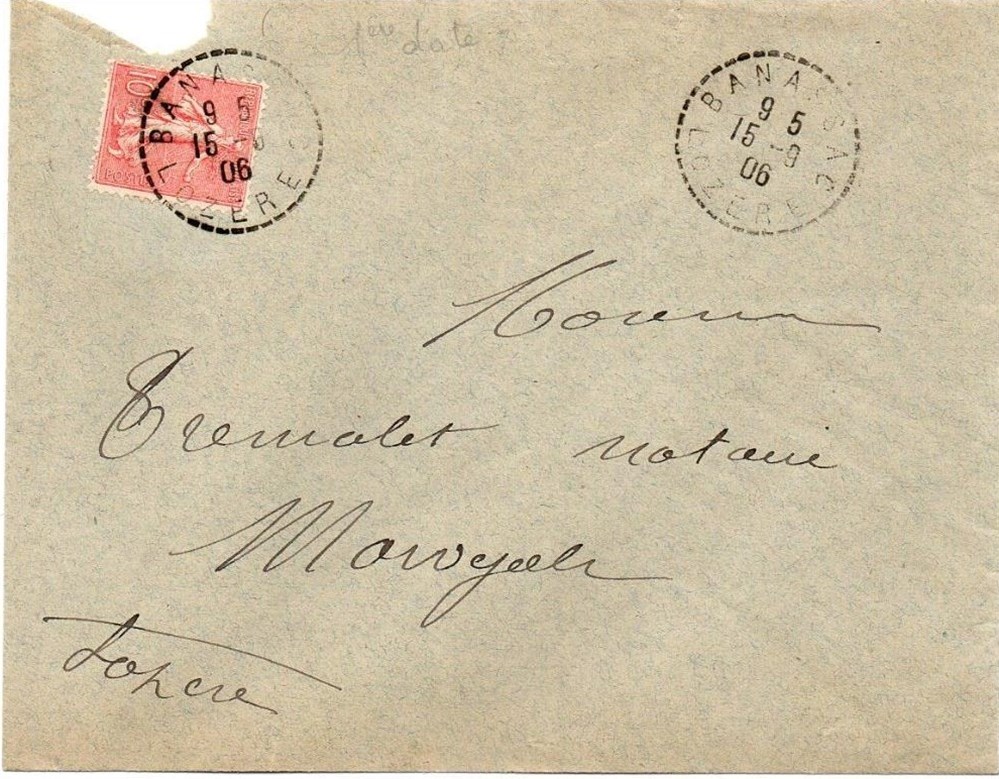 1ère date ?
BANASSAC
9 5
15 - 9
06
LOZERE
BANASSAC
9 5
15 - 9
06
LOZERE
10
POSTES
Monsieur
Tremolet notaire
Marvejols
Lozère